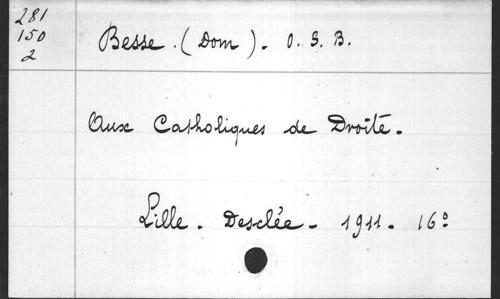 281
150
2
Besse. (Dom). O. S. B.
Aux Catholiques de Droite.
Lille. Desclée. 1911. 16°